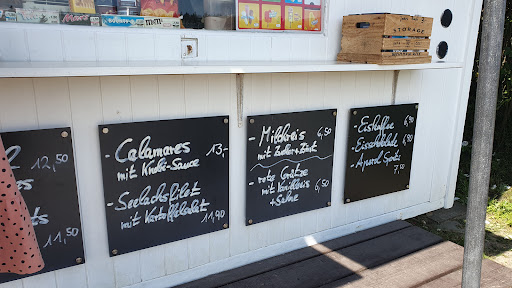 12,50
11,50
- Calamares 13,-
mit Knobi-Sauce
- Seelachsfilet
mit Kartoffelsalat 11,90
- Milchreis 6,50
mit Zucker + Zimt
- rote Grütze
mit Vanilleeis 6,50
+ Sahne
- Eiskaffee 6,50
- Eisschokolade 6,50
- Aperol Spritz
7,50
STORAGE